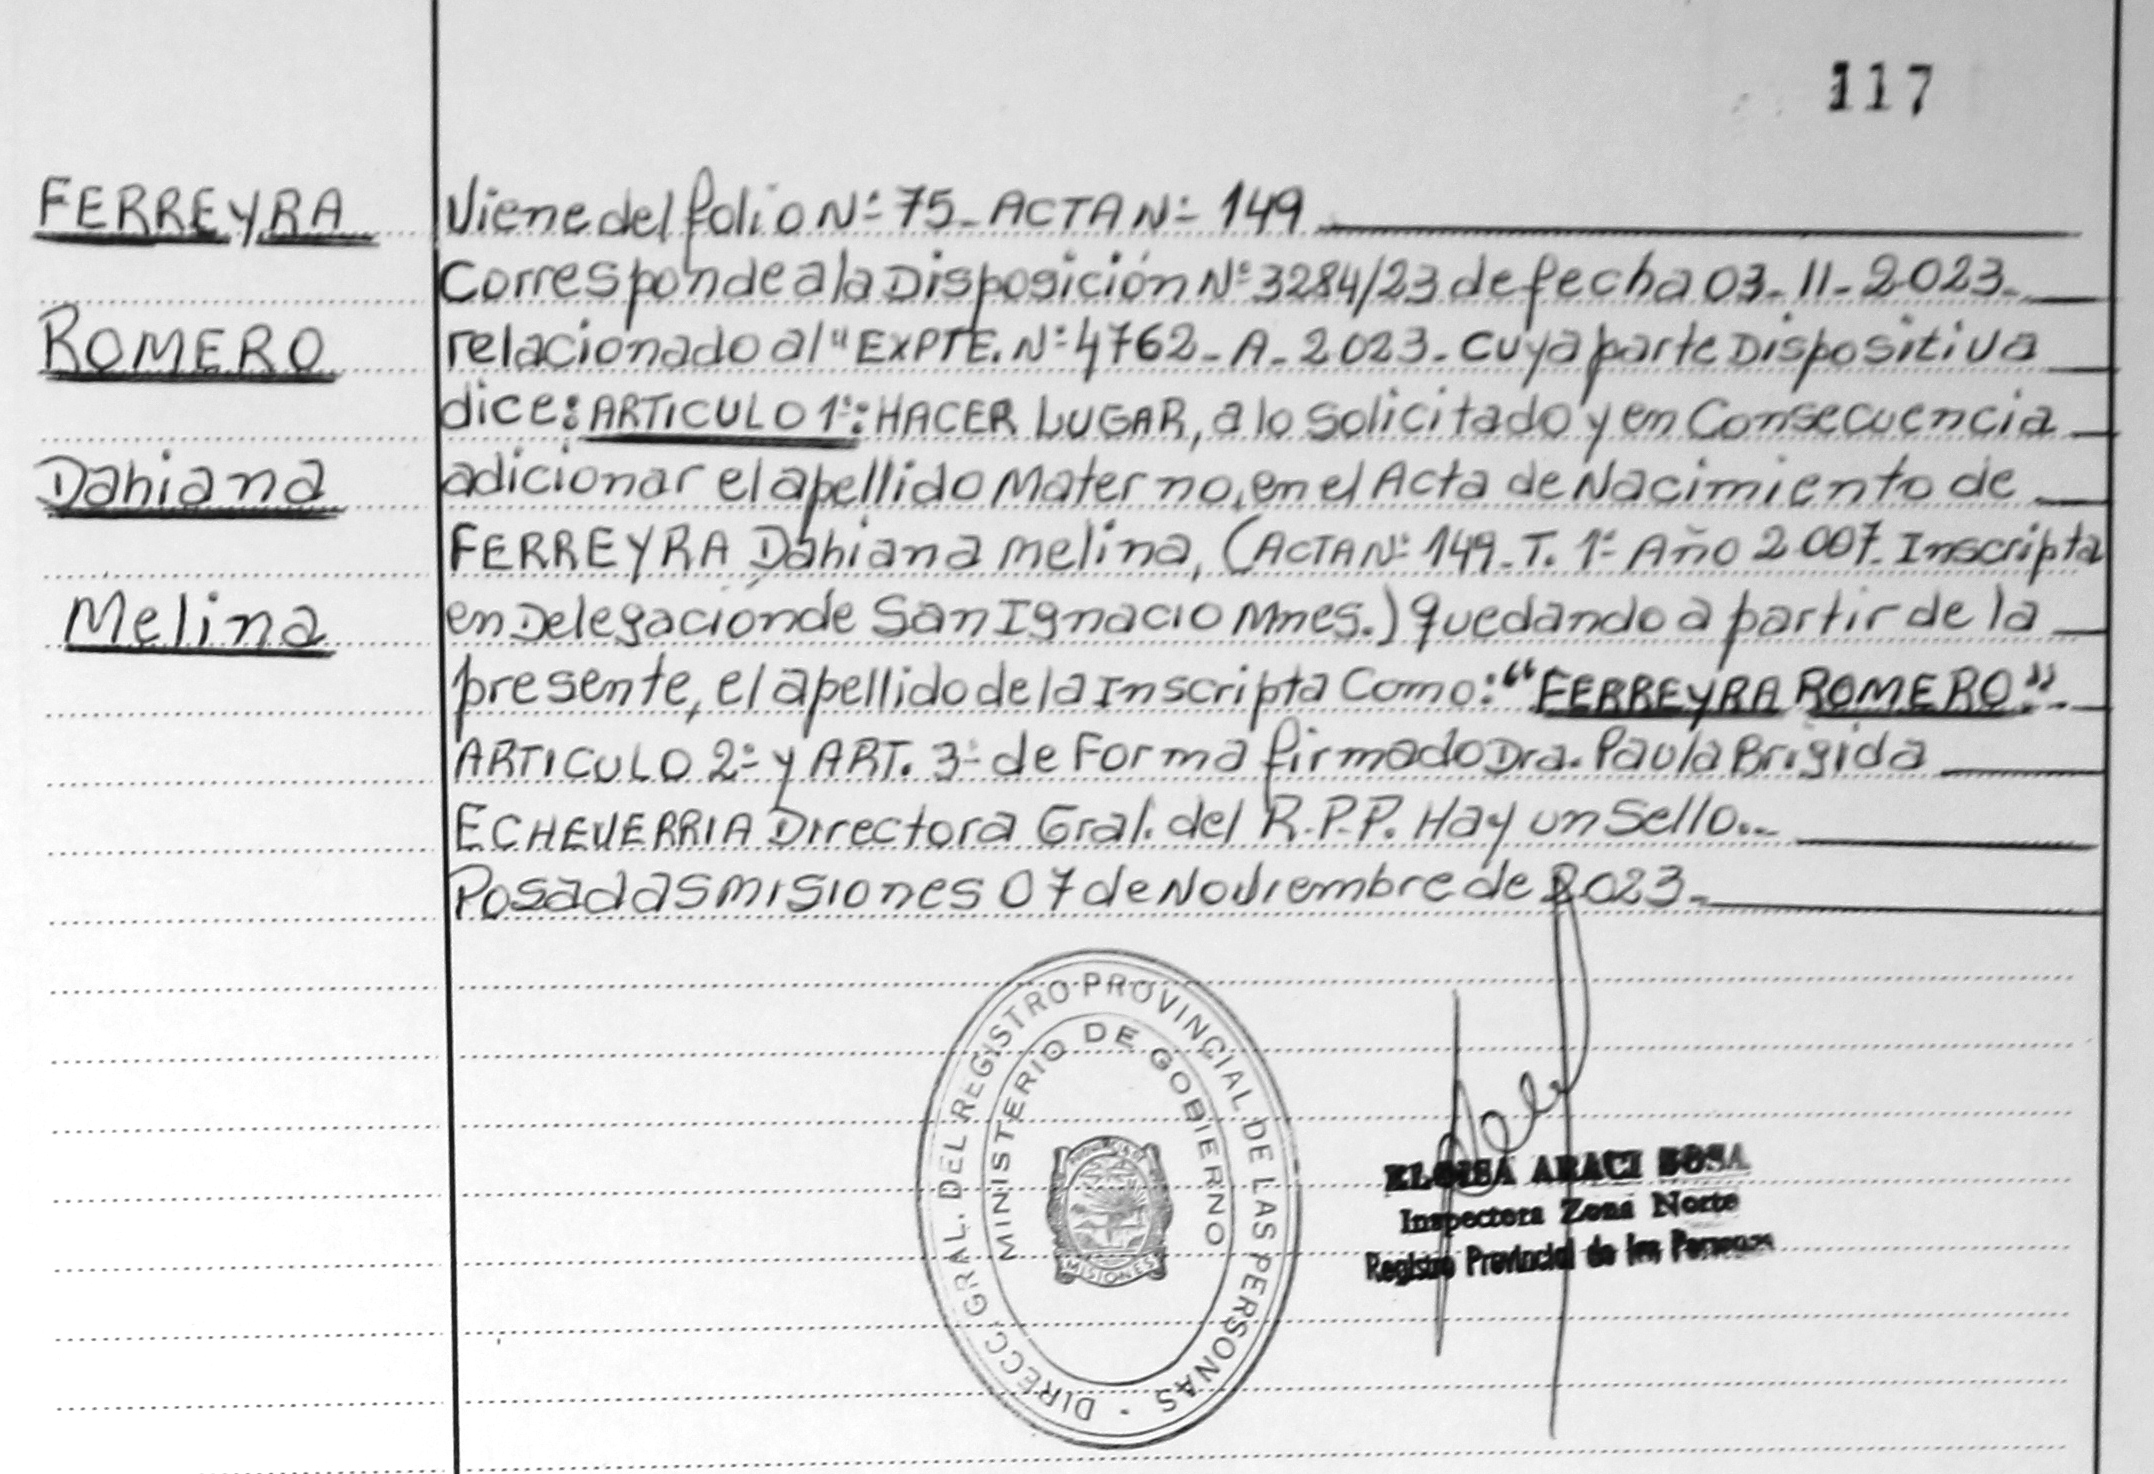 117
FERREYRA
ROMERO
Dahiana
Melina
Viene del folio Nº 75- ACTA Nº 149
Corresponde a la Disposición Nº 3284/23 de fecha 03-11-2023-
relacionado al "EXPTE. Nº 4762-A-2023- cuya parte Dispositiva
dice: ARTICULO 1º: HACER LUGAR, a lo solicitado y en Consecuencia
adicionar el apellido Materno, en el Acta de Nacimiento de
FERREYRA Dahiana Melina, (ACTA Nº 149-T. 1º Año 2007- Inscripta
en Delegación de San Ignacio Mnes.) quedando a partir de la
presente, el apellido de la Inscripta Como: "FERREYRA ROMERO".
ARTICULO 2º y ART. 3º de Forma firmado Dra. Paula Brigida
ECHEVERRIA Directora Gral. del R.P.P. Hay un Sello...
Posadas Misiones 07 de Noviembre de 2023-
DIRECC. GRAL. DEL REGISTRO PROVINCIAL DE LAS PERSONAS
MINISTERIO DE GOBIERNO
MISIONES
ELOISA ARACI SOSA
Inspectora Zona Norte
Registro Provincial de las Personas